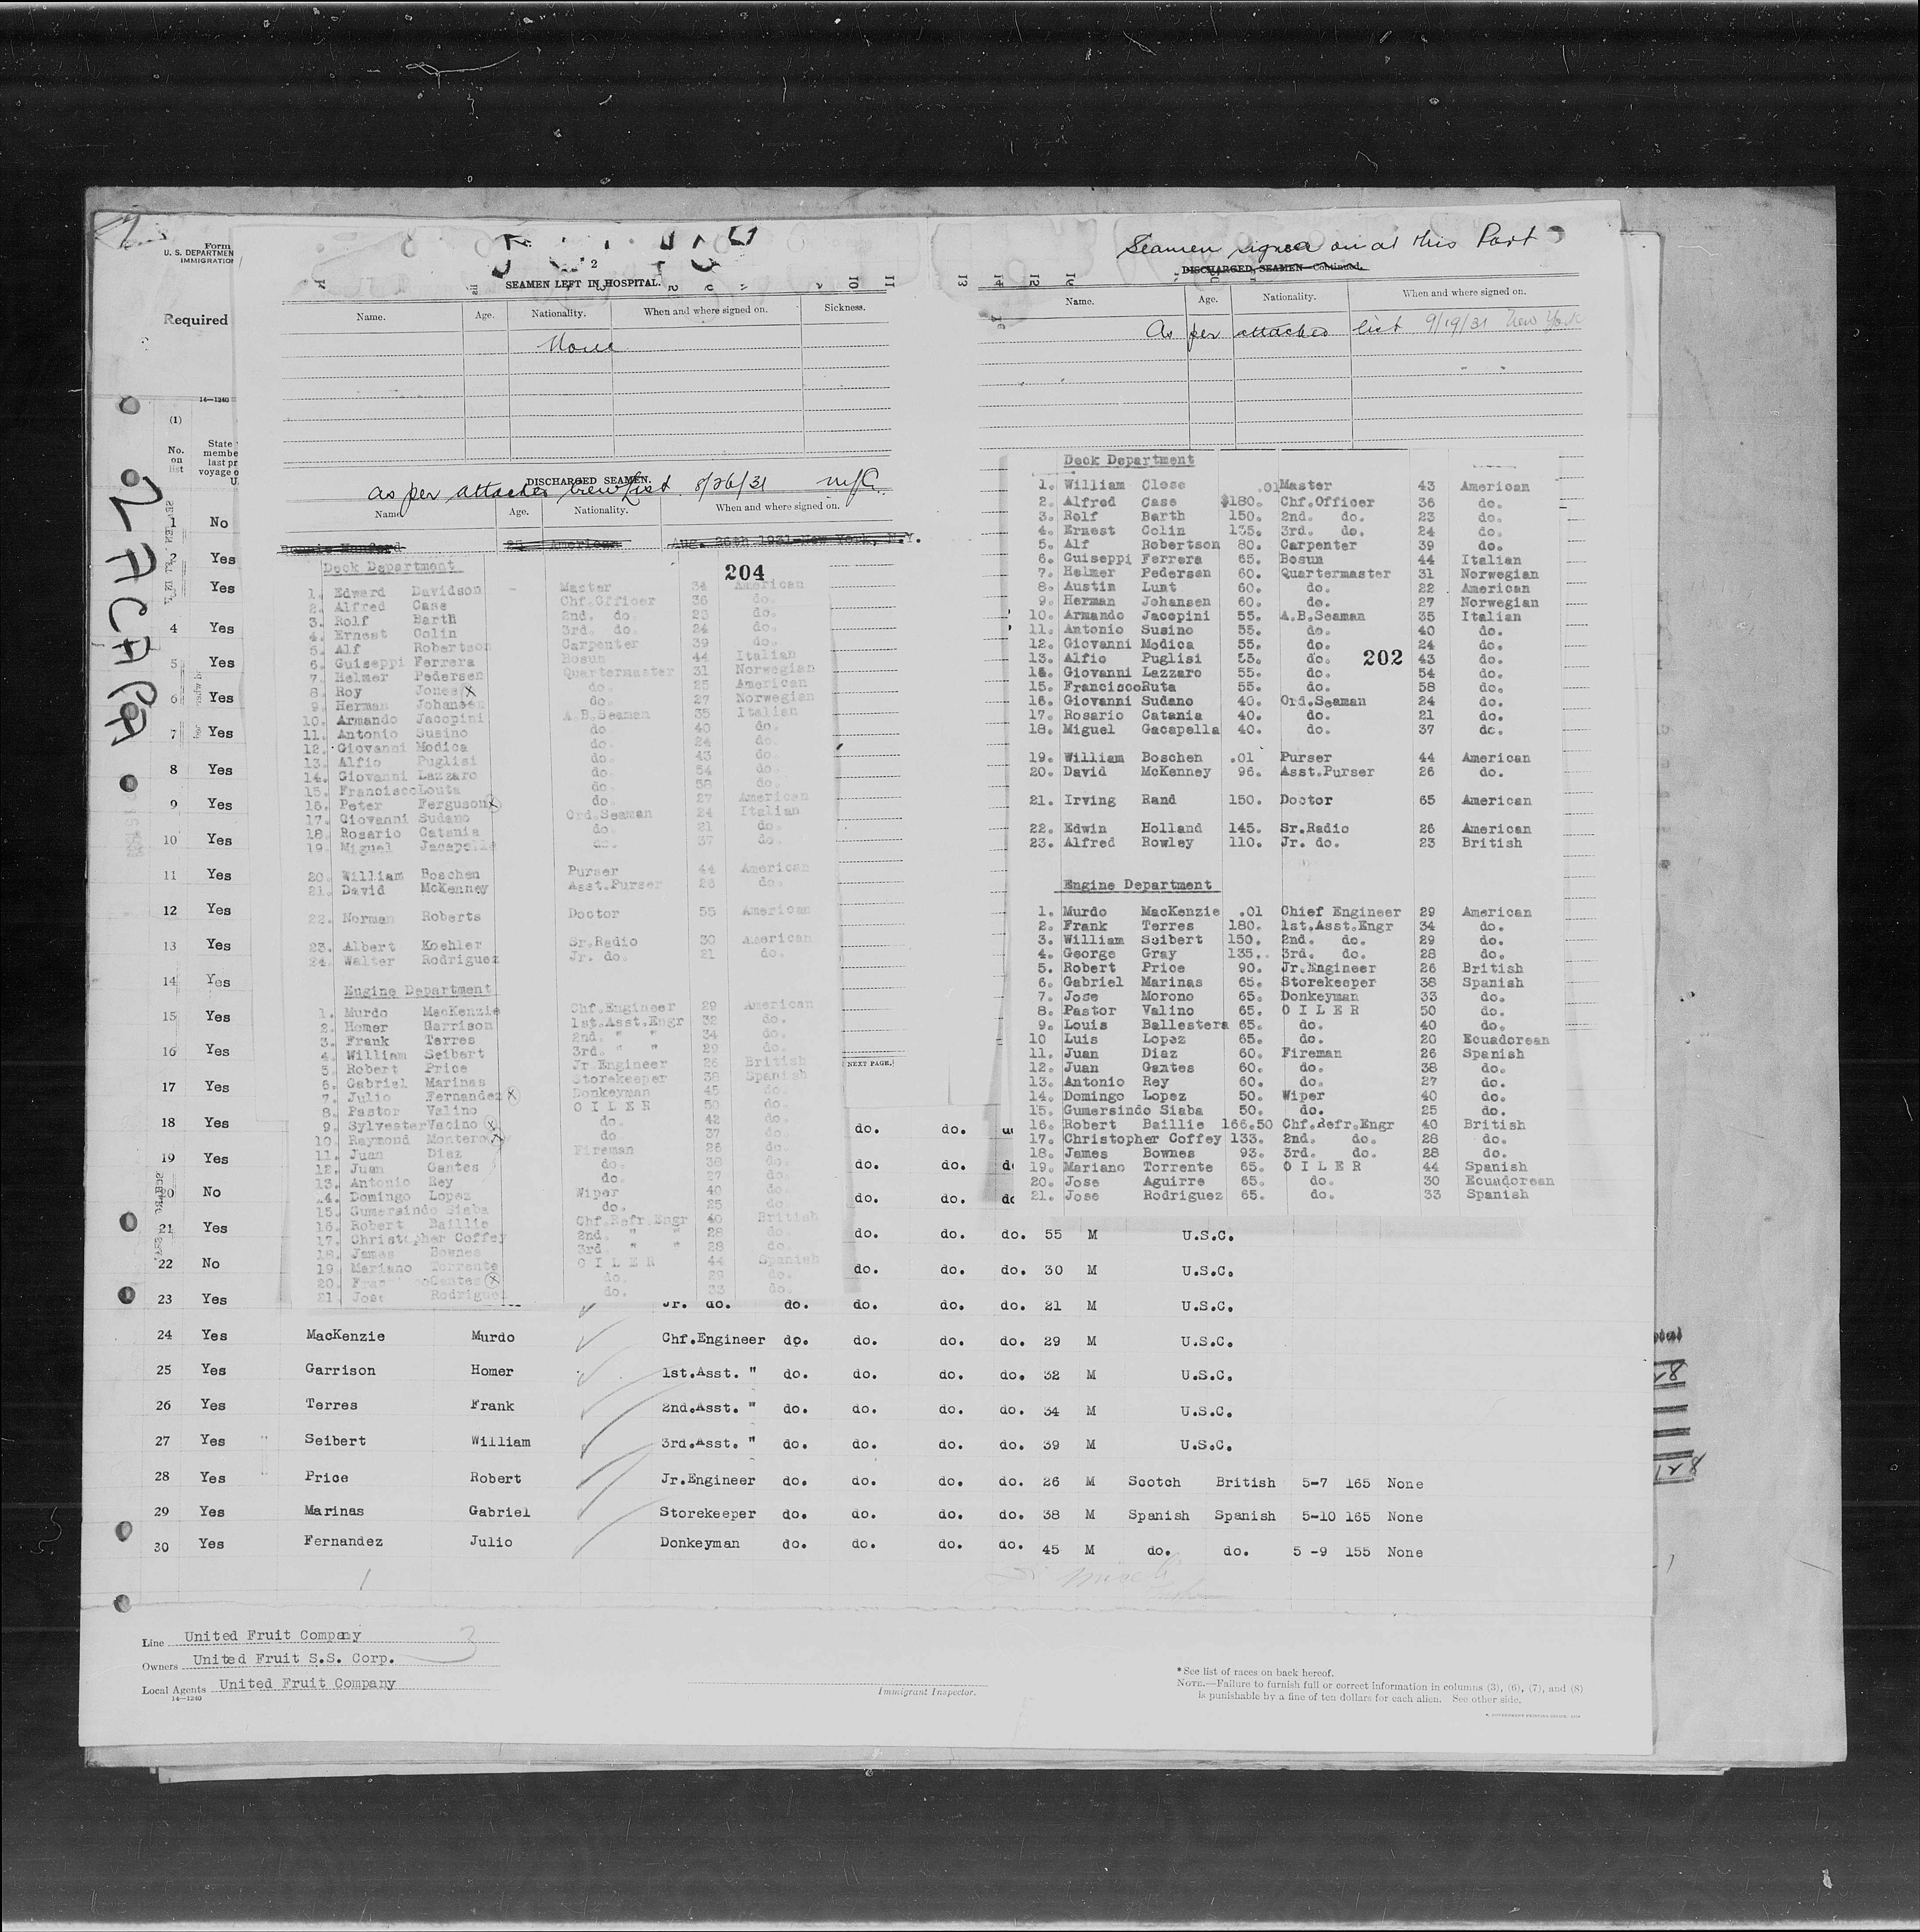 Form
U. S. DEPARTMEN
IMMIGRATION
Required
14—1240
(1)
No. on list
State
membe
last pr
voyage o
U.
ZACAPA
2
SEAMEN LEFT IN HOSPITAL.
Name. Age. Nationality. When and where signed on. Sickness.
None
DISCHARGED SEAMEN.
as per attached crew list. 8/26/31 N.Y.C.
Name Age. Nationality. When and where signed on.
25 American Aug. 26th 1931 New York, N.Y.
204
Deck Department
1. Edward Davidson Master 34 American
2. Alfred Case Chf.Officer 36 do.
3. Rolf Barth 2nd. do. 23 do.
4. Ernest Colin 3rd. do. 24 do.
5. Alf Robertson Carpenter 39 do.
6. Guiseppi Ferrera Bosun 44 Italian
7. Helmer Pedersen Quartermaster 31 Norwegian
8. Roy Jones X do. 25 American
9. Herman Johansen do. 27 Norwegian
10. Armando Jacopini A.B.Seaman 35 Italian
11. Antonio Susino do. 40 do.
12. Giovanni Modica do. 24 do.
13. Alfio Puglisi do. 43 do.
14. Giovanni Lazzaro do. 54 do.
15. FranciscoLouta do. 58 do.
16. Peter Ferguson X do. 27 American
17. Giovanni Sudano Ord.Seaman 24 Italian
18. Rosario Catania do. 21 do.
19. Miguel Jacapella do. 37 do.
20. William Boschen Purser 44 American
21. David McKenney Asst.Purser 26 do.
22. Norman Roberts Doctor 55 American
23. Albert Koehler Sr.Radio 30 American
24. Walter Rodriguez Jr. do. 21 do.
Engine Department
1. Murdo MacKenzie Chf.Engineer 29 American
2. Homer Garrison 1st.Asst.Engr 32 do.
3. Frank Terres 2nd. " " 34 do.
4. William Seibert 3rd. " " 29 do.
5. Robert Price Jr.Engineer 26 British
6. Gabriel Marinas Storekeeper 38 Spanish
7. Julio Fernandez X Donkeyman 45 do.
8. Pastor Valino O I L E R 50 do.
9. SylvesterVacino X do. 42 do.
10. Raymond Montero X do 37 do.
11. Juan Diaz Fireman 26 do.
12. Juan Gantes do. 38 do.
13. Antonio Rey do. 27 do.
14. Domingo Lopez Wiper 40 do.
15. Gumersindo Siaba do. 25 do.
16. Robert Baillie Chf.Refr.Engr 40 British
17. Christopher Coffey 2nd. " " 28 do.
18. James Bownes 3rd. " " 28 do.
19 Mariano Torrente O I L E R 44 Spanish
20. Gantes X do. 29 do.
21. Jose Rodriguez do. 33 do.
Seamen signed on at this Port
DISCHARGED, SEAMEN—Continued.
Name. Age. Nationality. When and where signed on.
As per attached list 9/19/31 New York
Deck Department
1. William Close .01 Master 43 American
2. Alfred Case $180. Chf.Officer 36 do.
3. Rolf Barth 150. 2nd. do. 23 do.
4. Ernest Colin 135. 3rd. do. 24 do.
5. Alf Robertson 80. Carpenter 39 do.
6. Guiseppi Ferrera 65. Bosun 44 Italian
7. Helmer Pedersen 60. Quartermaster 31 Norwegian
8. Austin Lunt 60. do. 22 American
9. Herman Johansen 60. do. 27 Norwegian
10. Armando Jacopini 55. A.B.Seaman 35 Italian
11. Antonio Susino 55. do. 40 do.
12. Giovanni Modica 55. do. 24 do.
13. Alfio Puglisi 55. do. 43 do.
202
14. Giovanni Lazzaro 55. do. 54 do.
15. FranciscoRuta 55. do. 58 do.
16. Giovanni Sudano 40. Ord.Seaman 24 do.
17. Rosario Catania 40. do. 21 do.
18. Miguel Gacapella 40. do. 37 do.
19. William Boschen .01 Purser 44 American
20. David McKenney 96. Asst.Purser 26 do.
21. Irving Rand 150. Doctor 65 American
22. Edwin Holland 145. Sr.Radio 26 American
23. Alfred Rowley 110. Jr. do. 23 British
Engine Department
1. Murdo MacKenzie .01 Chief Engineer 29 American
2. Frank Terres 180. 1st.Asst.Engr 34 do.
3. William Seibert 150. 2nd. do. 29 do.
4. George Gray 135.. 3rd. do. 28 do.
5. Robert Price 90. Jr.Engineer 26 British
6. Gabriel Marinas 65. Storekeeper 38 Spanish
7. Jose Morono 65. Donkeyman 33 do.
8. Pastor Valino 65. O I L E R 50 do.
9. Louis Ballestera 65. do. 40 do.
10 Luis Lopez 65. do. 20 Ecuadorean
11. Juan Diaz 60. Fireman 26 Spanish
12. Juan Gantes 60. do. 38 do.
13. Antonio Rey 60. do. 27 do.
14. Domingo Lopez 50. Wiper 40 do.
15. Gumersindo Siaba 50. do. 25 do.
16. Robert Baillie 166.50 Chf.Refr.Engr 40 British
17. Christopher Coffey 133. 2nd. do. 28 do.
18. James Bownes 93. 3rd. do. 28 do.
19. Mariano Torrente 65. O I L E R 44 Spanish
20. Jose Aguirre 65. do. 30 Ecuadorean
21. Jose Rodriguez 65. do. 33 Spanish
NEXT PAGE.
1 No
2 Yes
3 Yes
4 Yes
5 Yes
6 Yes
7 Yes
8 Yes
9 Yes
10 Yes
11 Yes
12 Yes
13 Yes
14 Yes
15 Yes
16 Yes
17 Yes
18 Yes do. do.
19 Yes do. do.
20 No do. do.
21 Yes do. do. do. 55 M U.S.C.
22 No do. do. do. 30 M U.S.C.
23 Yes Jr. do. do. do. do. do. 21 M U.S.C.
24 Yes MacKenzie Murdo Chf.Engineer do. do. do. do. 29 M U.S.C.
25 Yes Garrison Homer 1st.Asst. " do. do. do. do. 32 M U.S.C.
26 Yes Terres Frank 2nd.Asst. " do. do. do. do. 34 M U.S.C.
27 Yes Seibert William 3rd.Asst. " do. do. do. do. 39 M U.S.C.
28 Yes Price Robert Jr.Engineer do. do. do. do. 26 M Scotch British 5-7 165 None
29 Yes Marinas Gabriel Storekeeper do. do. do. do. 38 M Spanish Spanish 5-10 165 None
30 Yes Fernandez Julio Donkeyman do. do. do. do. 45 M do. do. 5 -9 155 None
Line United Fruit Company
Owners United Fruit S.S. Corp.
Local Agents United Fruit Company
14—1240
3
Immigrant Inspector.
*See list of races on back hereof.
NOTE.—Failure to furnish full or correct information in columns (3), (6), (7), and (8)
is punishable by a fine of ten dollars for each alien. See other side.
128